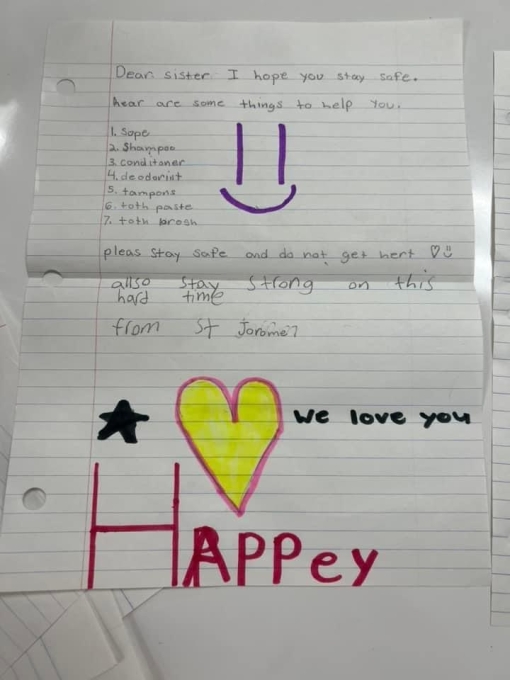 Dear sister I hope you stay safe.
hear are some things to help you.
1. Sope
2. Shampoo
3. conditaner
4. deoderist
5. tampons
6. toth paste
7. toth brosh
pleas stay safe and do not get hert ♡
allso stay strong on this
hard time
from St
We love you
HAPPey